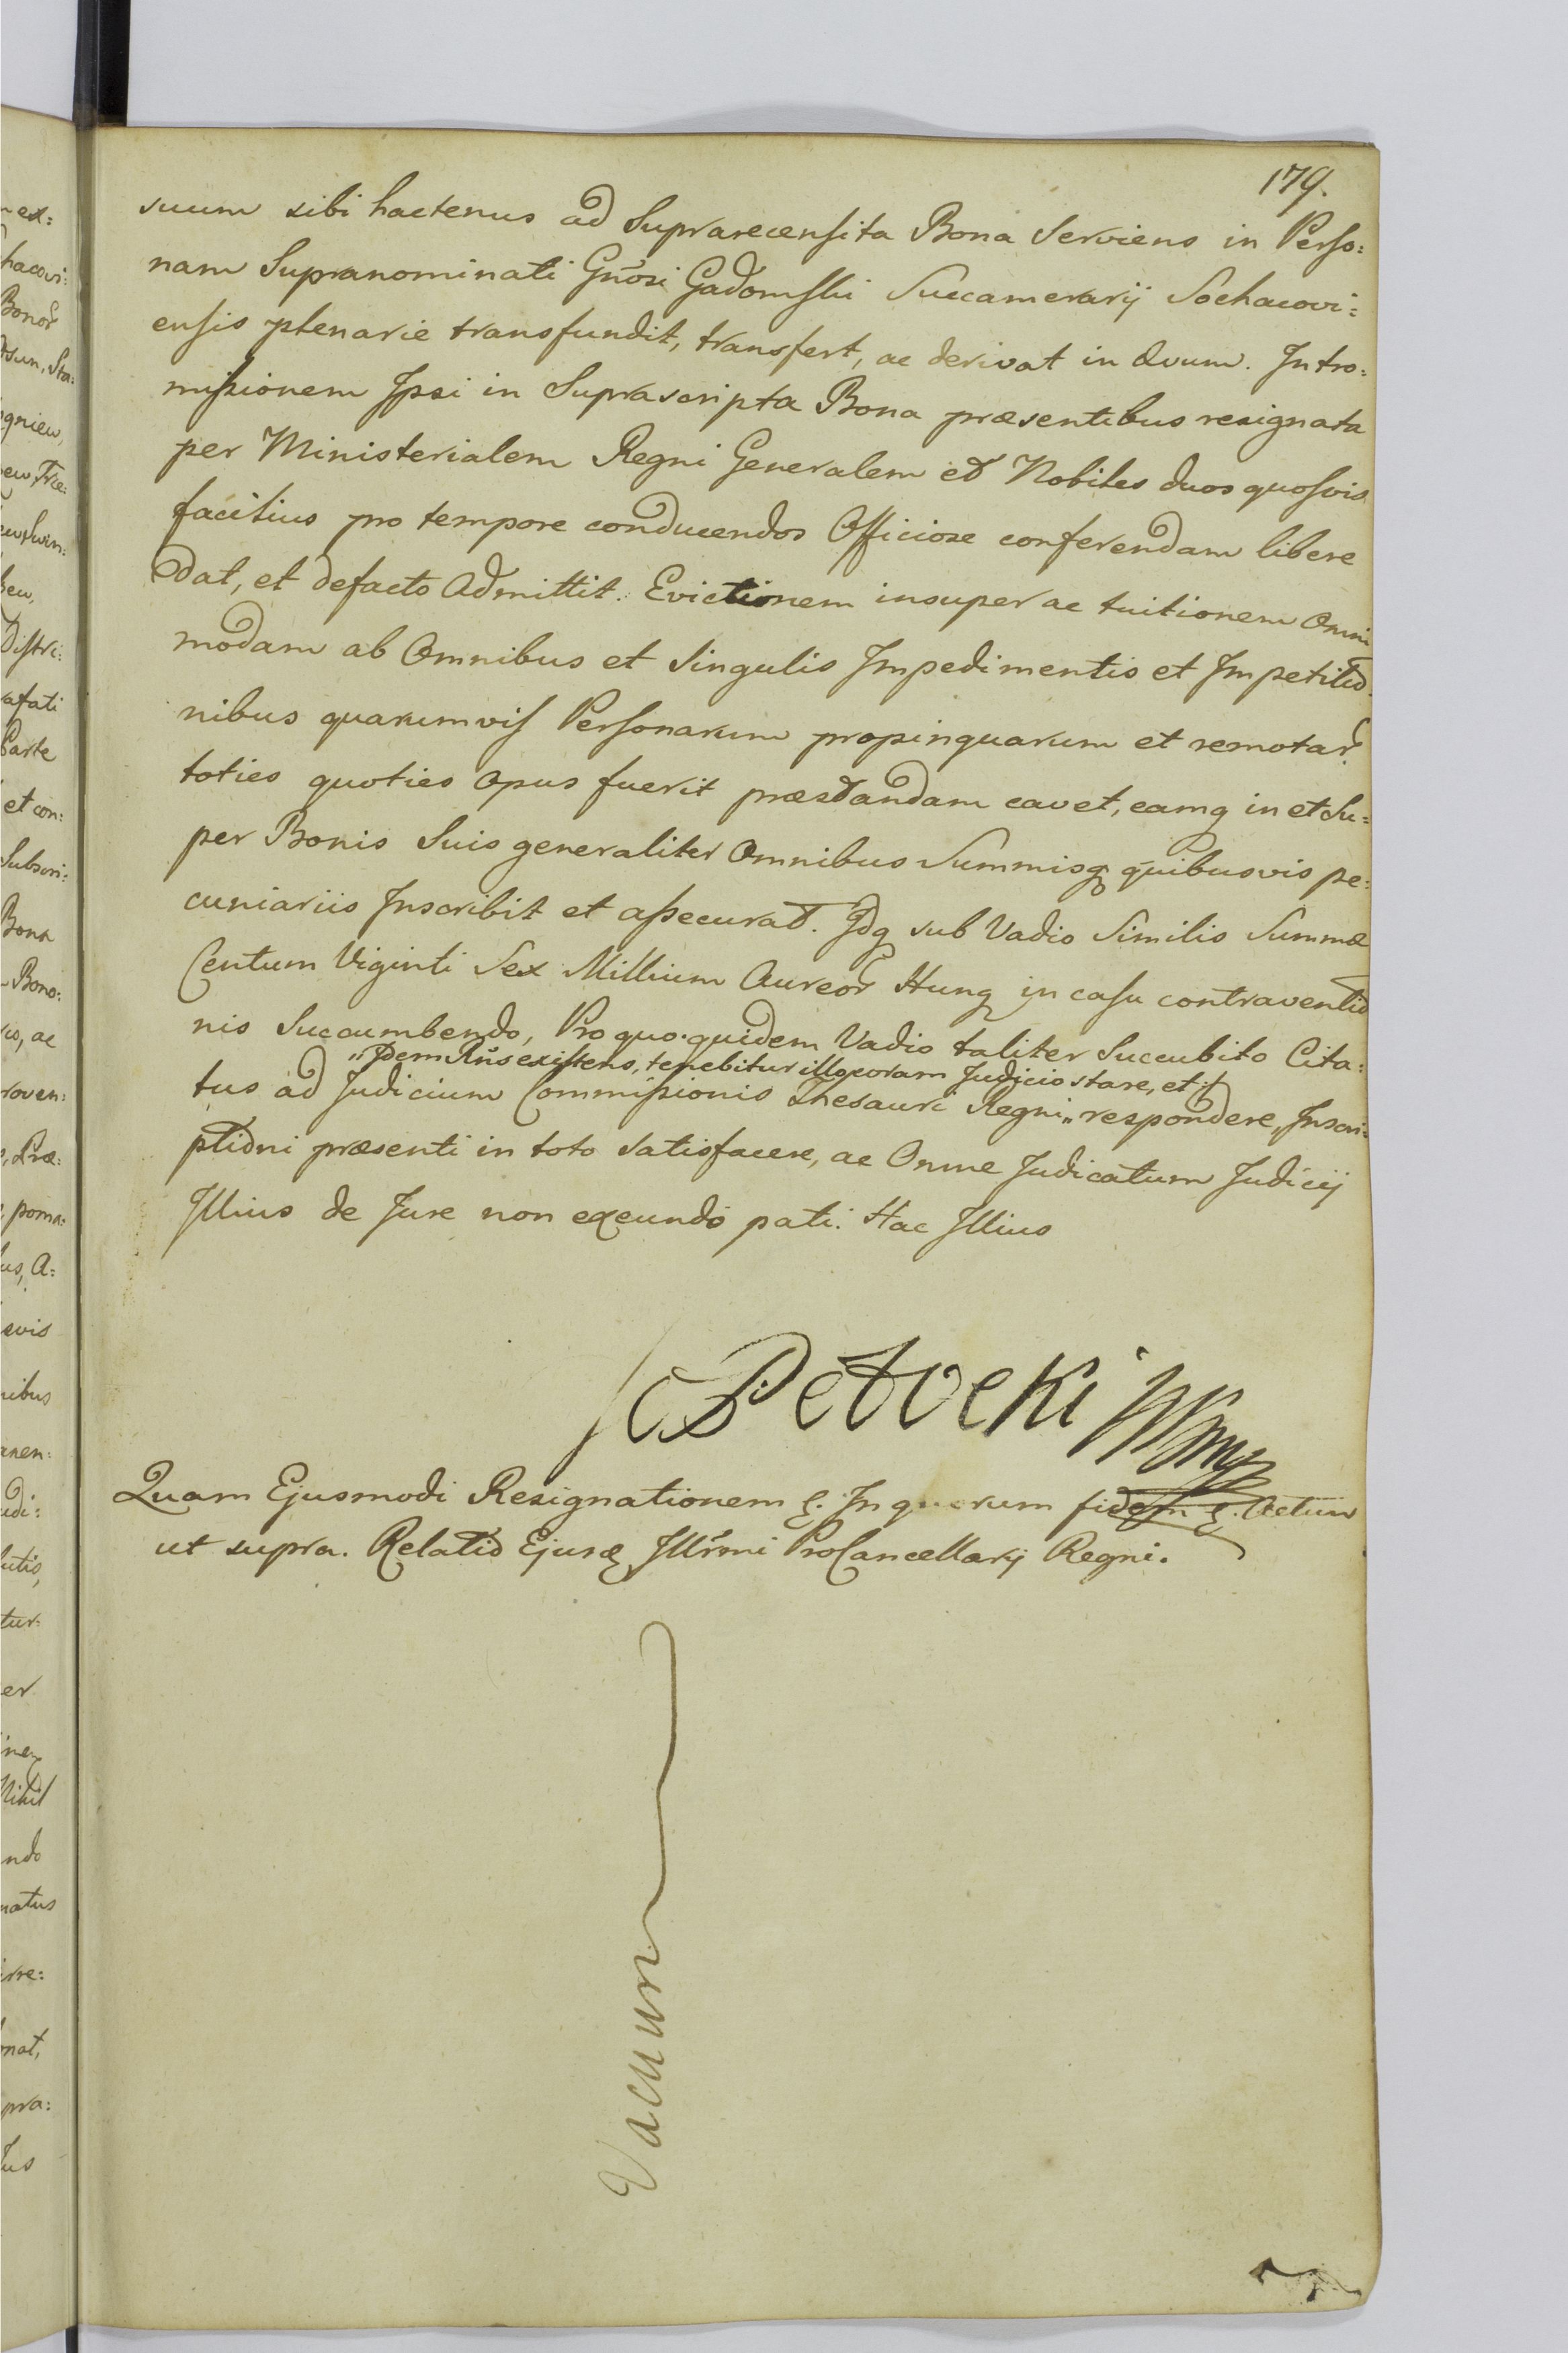 179.
suum sibi hactenus ad Suprarecensita Bona Serviens in Perso:
nam Supranominati Gn̄osi Gadomski Succamerarij Sochacovi:
ensis plenarie transfundit, transfert, ac derivat in Ævum. Intro:
missionem Ipsi in Suprascripta Bona præsentibus resignata
per Ministerialem Regni Generalem et Nobiles duos quosvis
facilius pro tempore conducendos Officiose conferendam libere
Dat, et defacto Admittit. Evictionem insuper ac tuitionem Omni
modam ab Omnibus et Singulis Impedimentis et Impetitio
nibus quarumvis Personarum propinquarum et remotar
toties quoties opus fuerit præstandam cavet, eamq in et Su:
per Bonis Suis generaliter Omnibus Summisq quibusvis pe:
cuniariis Inscribit et assecurat. Idq sub Vadio Similis Summæ
Centum Viginti Sex Millium Aureor Hung in casu contraventio
nis Succumbendo, Pro quo quidem Vadio taliter Succubito Cita:
"Idem Rn̄s existens, tenebitur illo coram Judicio stare, et
tus ad Judicium Commissionis Thesauri Regni" respondere, Inscri:
ptioni præsenti in toto satisfacere, ac Omne Judicatum Judicij
Illius de Jure non exeundo pati. Hac Illius
Quam Ejusmodi Resignationem &. In quorum fidem &. Actum
ut supra. Relatio Ejusd Illr̄mi ProCancellarij Regni.
Vacuum